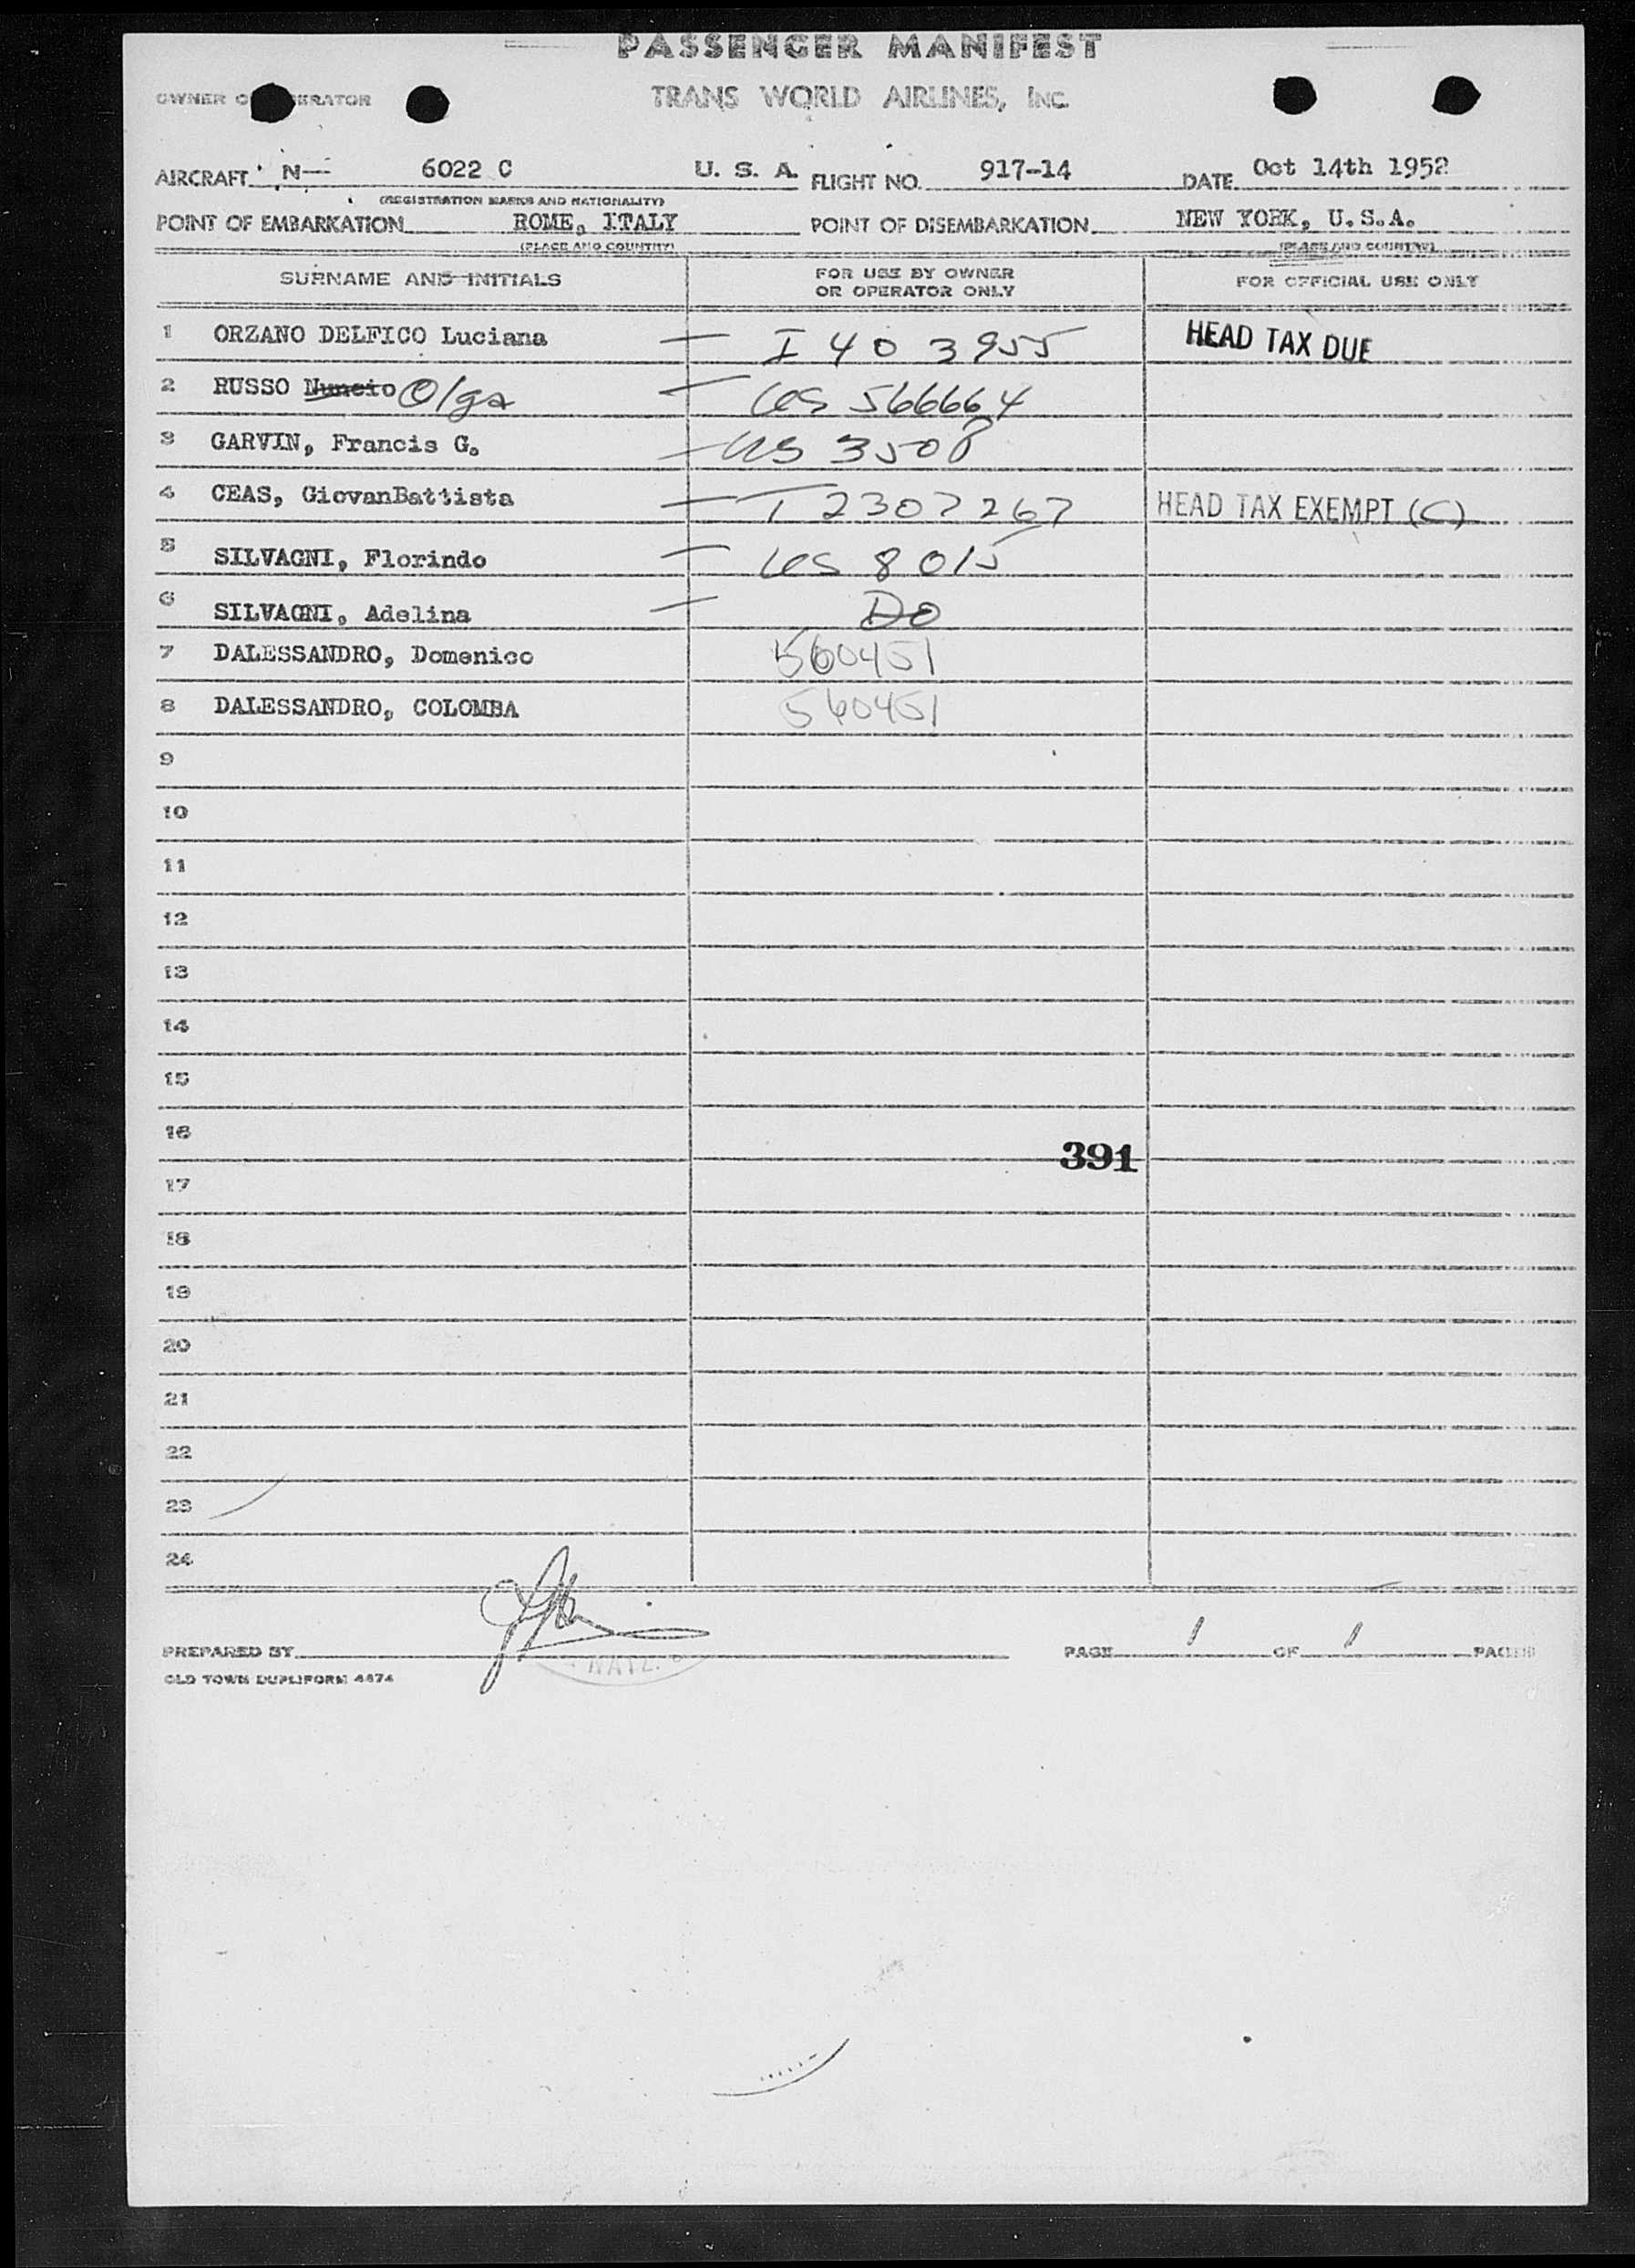 PASSENGER MANIFEST
OWNER O ERATOR TRANS WORLD AIRLINES, INC.
AIRCRAFT N— 6022 C U. S. A. FLIGHT NO. 917-14 DATE Oct 14th 1952
(REGISTRATION MARKS AND NATIONALITY)
POINT OF EMBARKATION ROME, ITALY POINT OF DISEMBARKATION NEW YORK, U.S.A.
(PLACE AND COUNTRY) (PLACE AND COUNTRY)
SURNAME AND INITIALS FOR USE BY OWNER OR OPERATOR ONLY FOR OFFICIAL USE ONLY
1 ORZANO DELFICO Luciana — I 403955 HEAD TAX DUE
2 RUSSO Nuncio Olga — US 566664
3 GARVIN, Francis G. — US 3508
4 CEAS, GiovanBattista — I 2307267 HEAD TAX EXEMPT (C)
5 SILVAGNI, Florindo — US 8015
6 SILVAGNI, Adelina — Do
7 DALESSANDRO, Domenico 560451
8 DALESSANDRO, COLOMBA 560451
9
10
11
12
13
14
15
16
391
17
18
19
20
21
22
23
24
PREPARED BY PAGE 1 OF 1 PAGES
OLD TOWN DUPLIFORM 4474